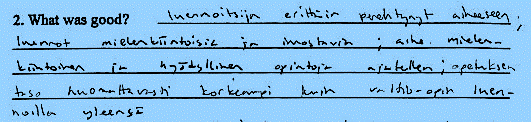 2. What was good? Luennoitsija erittäin perehtynyt aiheeseen,
luennot mielenkiintoisia ja innostavia; aihe mielen-
kiintoinen ja hyödyllinen opintoja ajatellen; opetuksen
taso huomattavasti korkeampi kuin valtio-opin luen-
noilla yleensä